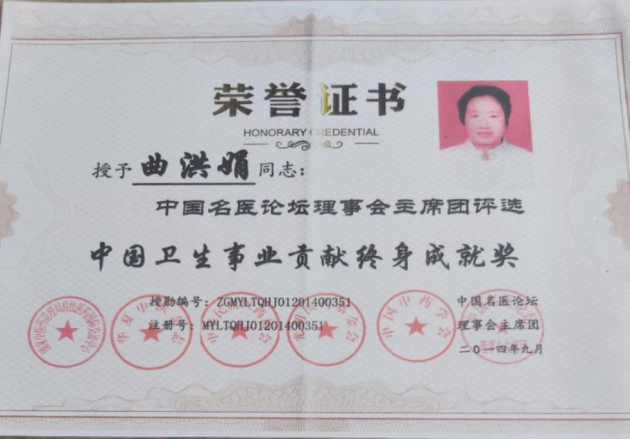 荣誉证书
HONORARY CREDENTIAL
授予曲洪娟同志：
中国名医论坛理事会主席团评选
中国卫生事业贡献终身成就奖
授勋编号：ZGMYLTQHJ01201400351
注册号：MYLTQHJ01201400351
中国名医论坛
理事会主席团
二〇一四年九月
中国中药学会